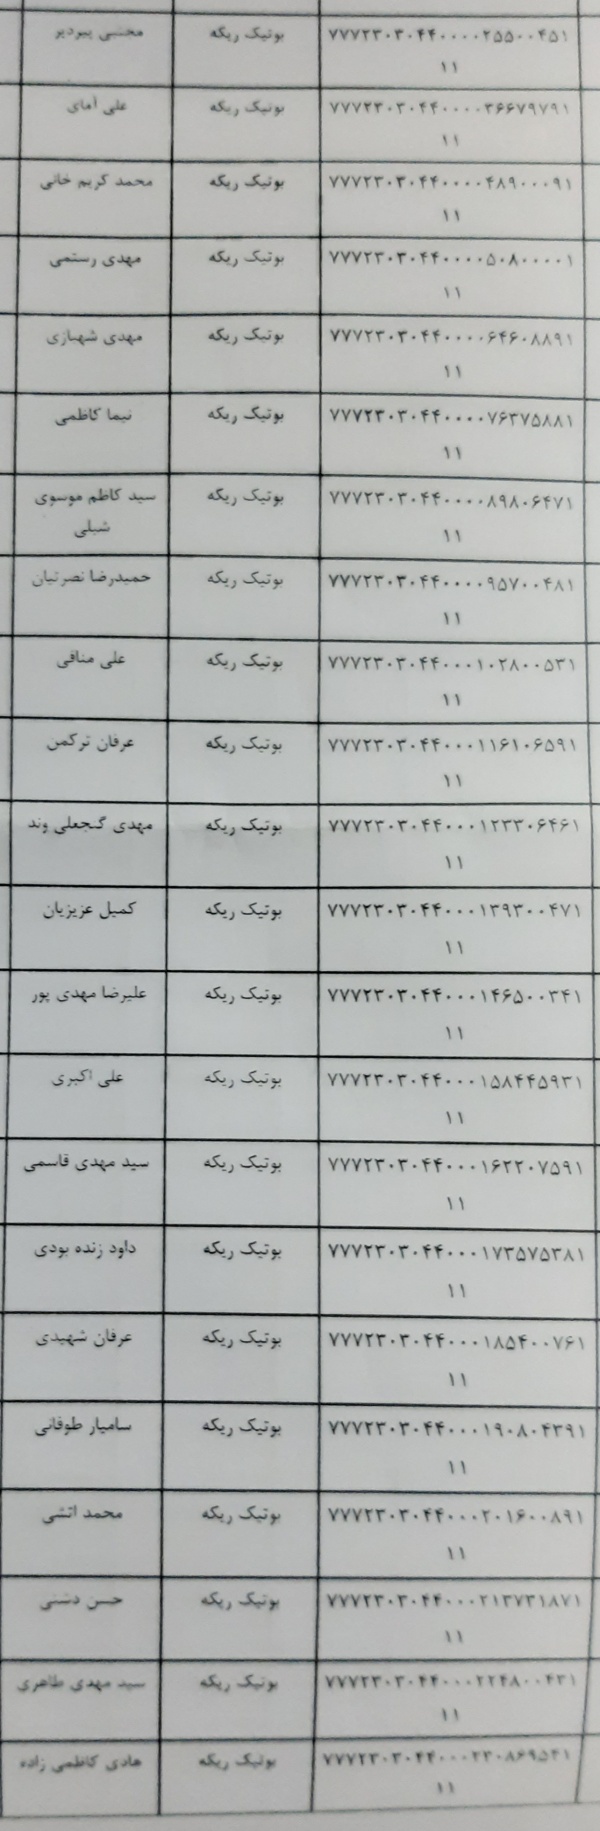 مجتبی پیردیر بوتیک ریکه ۷۷۷۲۳۰۳۰۴۴۰۰۰۰۲۵۵۰۰۴۵۱
۱۱
علی آمای بوتیک ریکه ۷۷۷۲۳۰۳۰۴۴۰۰۰۰۳۶۶۷۹۷۹۱
۱۱
محمد کریم خانی بوتیک ریکه ۷۷۷۲۳۰۳۰۴۴۰۰۰۰۴۸۹۰۰۰۹۱
۱۱
مهدی رستمی بوتیک ریکه ۷۷۷۲۳۰۳۰۴۴۰۰۰۰۵۰۸۰۰۰۰۱
۱۱
مهدی شهبازی بوتیک ریکه ۷۷۷۲۳۰۳۰۴۴۰۰۰۰۶۴۶۰۸۸۹۱
۱۱
نیما کاظمی بوتیک ریکه ۷۷۷۲۳۰۳۰۴۴۰۰۰۰۷۶۳۷۵۸۸۱
۱۱
سید کاظم موسوی بوتیک ریکه ۷۷۷۲۳۰۳۰۴۴۰۰۰۰۸۹۸۰۶۴۷۱
شبلی ۱۱
حمیدرضا نصرتیان بوتیک ریکه ۷۷۷۲۳۰۳۰۴۴۰۰۰۰۹۵۷۰۰۴۸۱
۱۱
علی منافی بوتیک ریکه ۷۷۷۲۳۰۳۰۴۴۰۰۰۱۰۲۸۰۰۵۳۱
۱۱
عرفان ترکمن بوتیک ریکه ۷۷۷۲۳۰۳۰۴۴۰۰۰۱۱۶۱۰۶۵۹۱
۱۱
مهدی گنجعلی وند بوتیک ریکه ۷۷۷۲۳۰۳۰۴۴۰۰۰۱۲۳۳۰۶۴۶۱
۱۱
کمیل عزیزیان بوتیک ریکه ۷۷۷۲۳۰۳۰۴۴۰۰۰۱۳۹۳۰۰۴۷۱
۱۱
علیرضا مهدی پور بوتیک ریکه ۷۷۷۲۳۰۳۰۴۴۰۰۰۱۴۶۵۰۰۳۴۱
۱۱
علی اکبری بوتیک ریکه ۷۷۷۲۳۰۳۰۴۴۰۰۰۱۵۸۴۴۵۹۳۱
۱۱
سید مهدی قاسمی بوتیک ریکه ۷۷۷۲۳۰۳۰۴۴۰۰۰۱۶۲۲۰۷۵۹۱
۱۱
داود زنده بودی بوتیک ریکه ۷۷۷۲۳۰۳۰۴۴۰۰۰۱۷۳۵۷۵۳۸۱
۱۱
عرفان شهیدی بوتیک ریکه ۷۷۷۲۳۰۳۰۴۴۰۰۰۱۸۵۴۰۰۷۶۱
۱۱
سامیار طوفانی بوتیک ریکه ۷۷۷۲۳۰۳۰۴۴۰۰۰۱۹۰۸۰۴۳۹۱
۱۱
محمد اتشی بوتیک ریکه ۷۷۷۲۳۰۳۰۴۴۰۰۰۲۰۱۶۰۰۸۹۱
۱۱
حسن دشتی بوتیک ریکه ۷۷۷۲۳۰۳۰۴۴۰۰۰۲۱۳۷۳۱۸۷۱
۱۱
سید مهدی طاهری بوتیک ریکه ۷۷۷۲۳۰۳۰۴۴۰۰۰۲۲۴۸۰۰۴۳۱
۱۱
هادی کاظمی زاده بوتیک ریکه ۷۷۷۲۳۰۳۰۴۴۰۰۰۲۳۰۸۶۹۵۴۱
۱۱